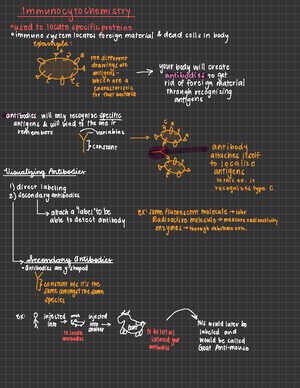 Immunocytochemistry
*used to locate specific proteins
*immune system locates foreign material & dead cells in body
example:
the different
drawings are
antigens-
which are a
characteristic
for that bacteria
your body will create
antibodies to get
rid of foreign material
through recognizing
antigens
antibodies will only recognize specific
antigens & will bind to the one it
remembers
variables
constant
antibody
attaches itself
to localize
antigens
in this ex. it
recognized type C
-Visualizing Antibodies
1) direct labeling
2) secondary antibodies
attach a "label" to be
able to detect antibody
ex: some fluorescent molecule → color
Radioactive molecule → measure radioactivity
enzymes → through substrate
Secondary Antibodies
• Antibodies are y-shaped
constant b/c it's the
same amongst the same
species
EX:
injected
into
injected
into
another
Goat
to create
antibodies
this would later be
labeled and
would be called
Goat Anti-mouse